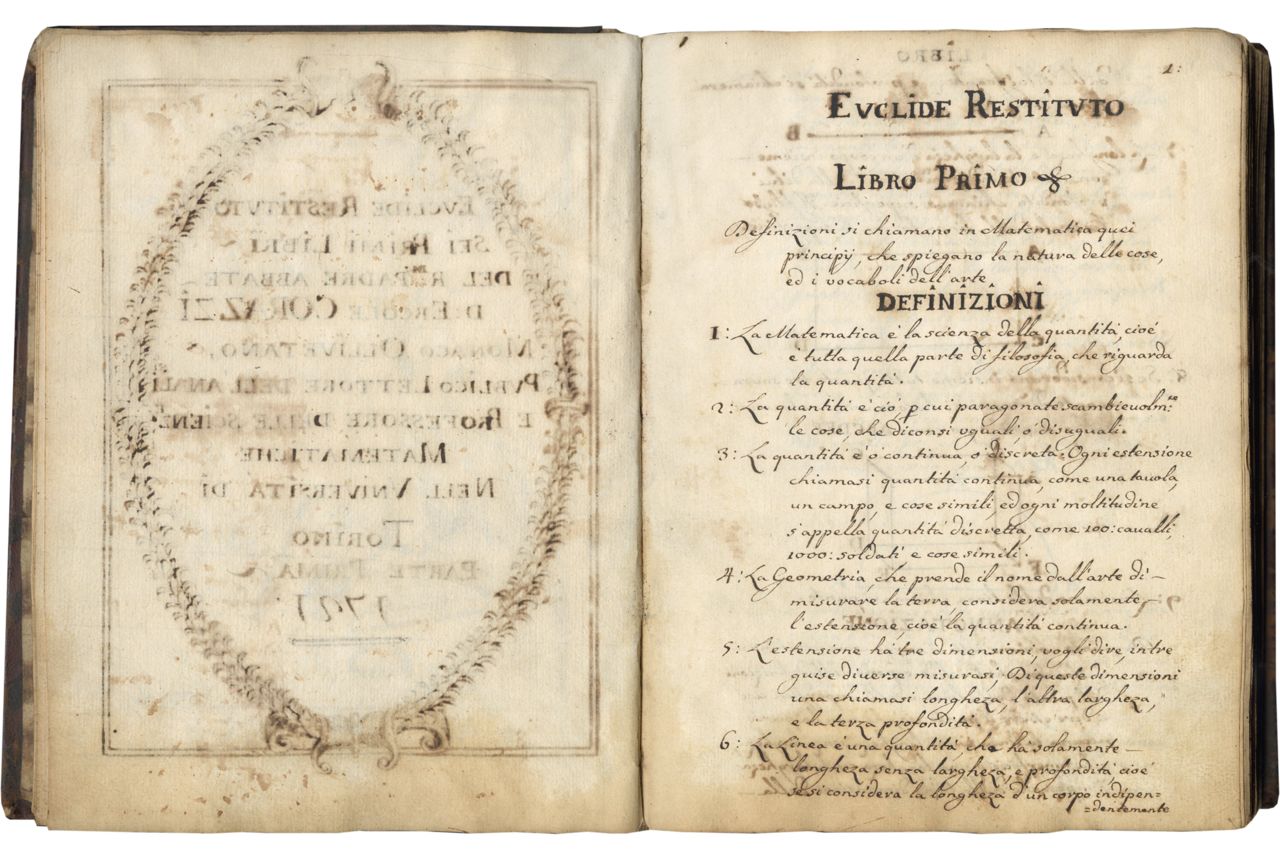 EVCLIDE RESTITVTO
SEI PRIMI LIBRI
DEL R.MO PADRE ABBATE
D. ERCOLE CORAZZI
MONACO OLLIVETANO,
PVBLICO LETTORE DELL ANALI
E PROFESSORE DELLE SCIENZ
MATEMATICHE
NELL VNIVERSITA DI
TORINO
PARTE PRIMA
1721
1:
EVCLIDE RESTITVTO
LIBRO PRIMO
Definizioni si chiamano in Matematica quei
principÿ, che spiegano la natura delle cose,
ed i vocaboli dell'arte
DEFINIZIONI
1: La Matematica é la scienza della quantitá, cioé
é tutta quella parte di filosofia, che riguarda
la quantitá.
2: La quantitá é ció, ꝑ cui paragonate scambievolm:te
le cose, che diconsi vguali ó disuguali.
3: La quantitá é ó continua, ó discreta. Ogni estensione
chiamasi quantitá continua, come una tauola,
un campo, e cose simili ed ogni moltitudine
s'appella quantitá discretta, come 100: caualli,
1000: soldati e cose simili.
4: La Geometria, che prende il nome dall'arte di –
misurare la terra considera solamente –
l'estensione, cioé la quantitá continua.
5: L'estensione há tre dimensioni, vogli dire, in tre
guise diverse misurasi, Di queste dimensioni
una chiamasi longheza, l'altra largheza,
e la terza profonditá.
6: La Linea é una quantitá, che ha solamente –
longheza senza largheza, e profonditá, cioé
se si considera la longheza d'un corpo indipen=
=dentemente